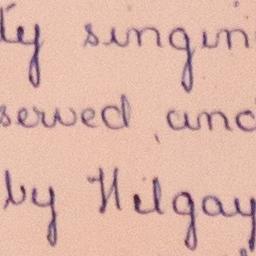 ty singin
served, and
by Hilgay